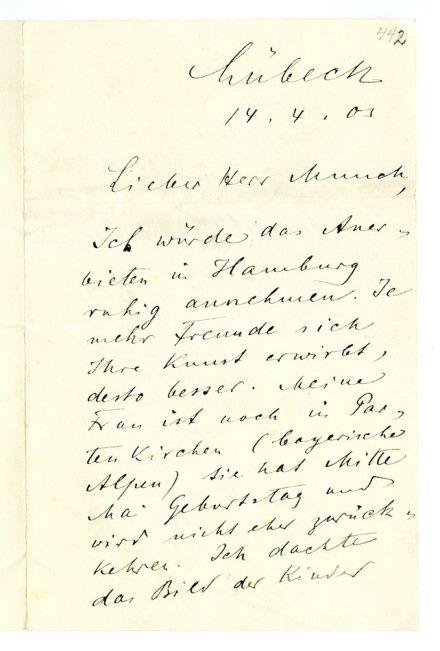 442
Lübeck
14. 4. 03
Lieber Herr Munch,
Ich würde das Aner-
bieten in Hamburg
ruhig annehmen. Je
mehr Freunde sich
Ihre Kunst erwirbt,
desto besser. Meine
Frau ist noch in Par-
tenkirchen (bayerische
Alpen) sie hat Mitte
Mai Geburtstag und
wird nicht eher zurück-
kehren. Ich dachte
das Bild der Kinder